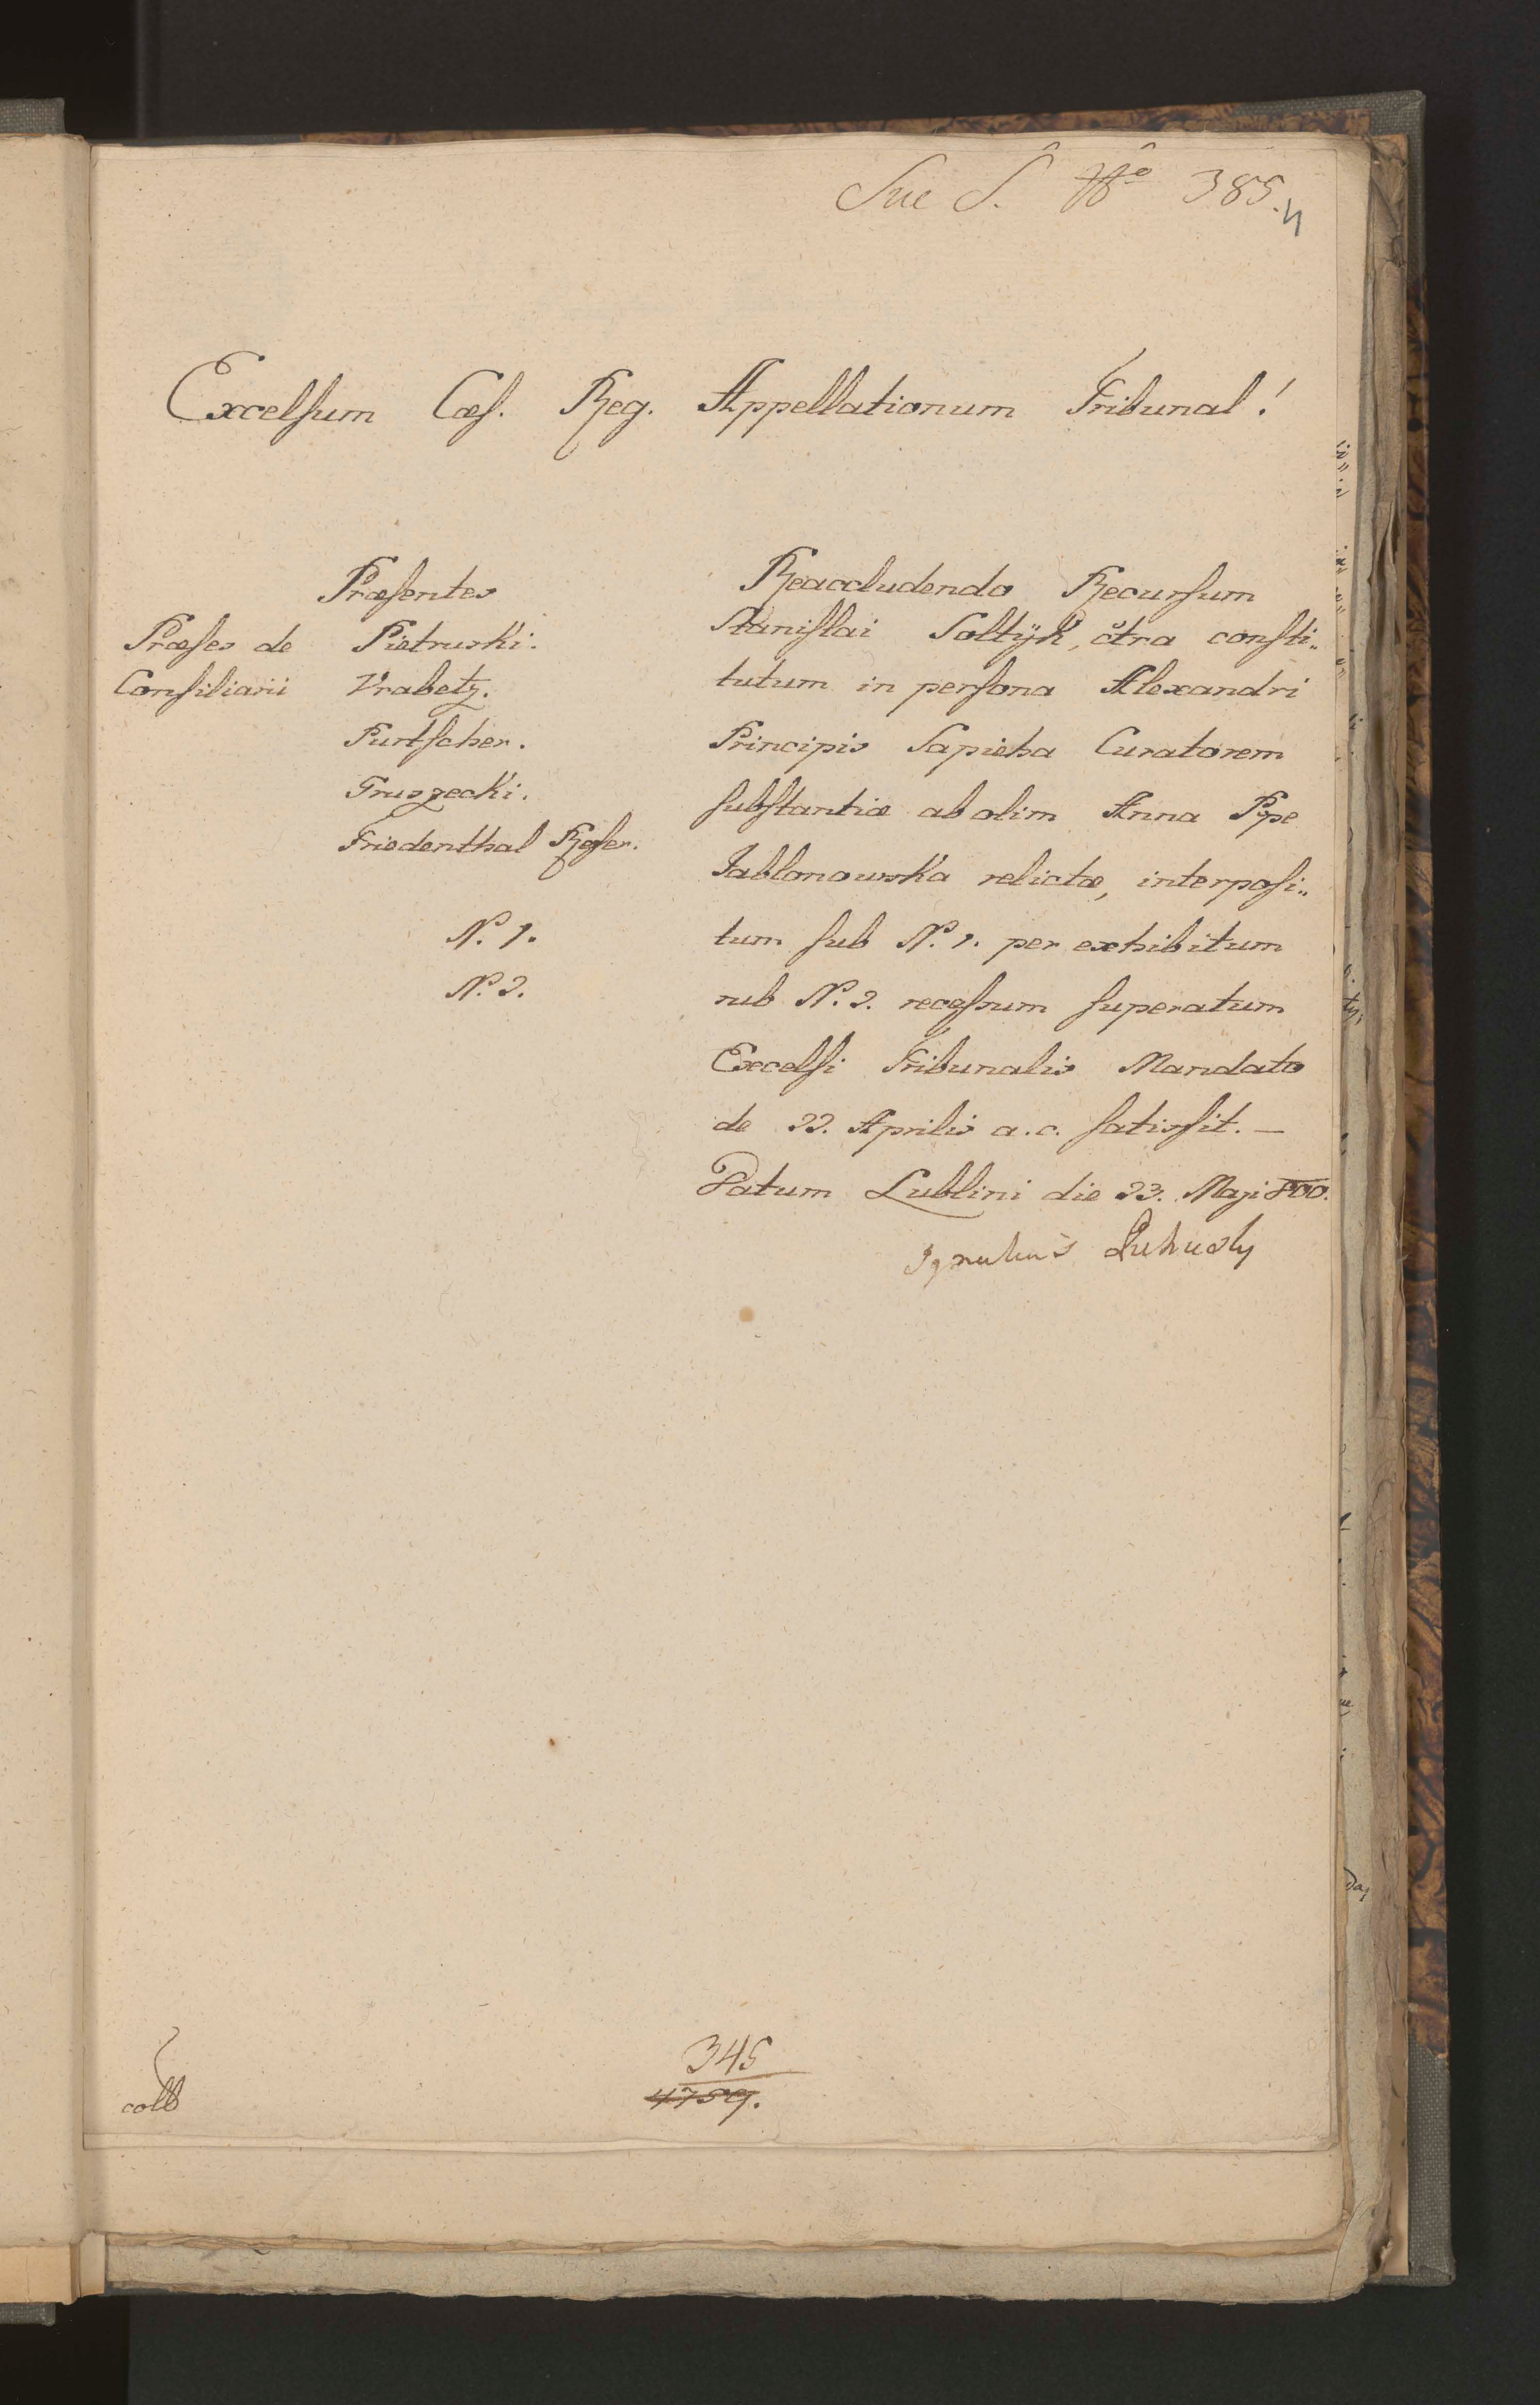 385.
Excelsum Cæs. Reg. Appellationum Tribunal!
Præsentes
Præses de Pietruski.
Consiliarii Vrabetz.
Purtscher.
Gruszecki.
Friedenthal Refer.
N. 1.
N. 2.
Reaccludendo Recursum
Stanislai Soltÿk, ctra consti„
tutum in persona Alexandri
Principis Sapieha Curatorem
substantiæ ab olim Anna Ppe
Jablonowska relictæ, interposi„
tum sub N. 1. per exhibitum
sub N. 2. recessum superatum
Excelsi Tribunalis Mandato
de 22. Aprilis a. c. satisfit. —
Datum Lublini die 23. Maji 800.
345
4759.
coll